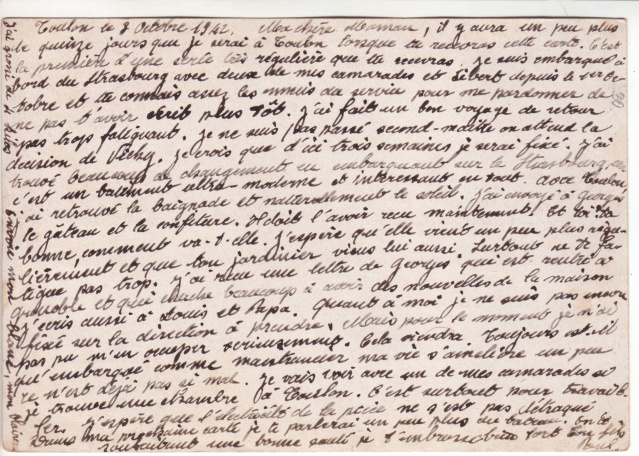 Toulon le 8 Octobre 1942. Ma chère Maman, il y aura un peu plus
de quinze jours que je serai à Toulon lorsque tu recevras cette carte. C'est
la première d'une série très régulière que tu recevras. Je suis embarqué à
bord du Strasbourg avec deux de mes camarades et Sibert depuis le 1er Oc
tobre et tu connais assez les ennuis du service pour me pardonner de
ne pas t'avoir écrit plus tôt. J'ai fait un bon voyage de retour
pas trop fatiguant. Je ne suis pas passé second-maître on attend la
décision de Vichy. Je crois que d'ici trois semaines je serai fixé. J'ai
trouvé beaucoup de changement en embarquant sur le Strasbourg, car
c'est un batiment ultra moderne et interessant en tout. Avec Toulon,
j'ai retrouvé la baignade et naturellement le soleil. J'ai envoyé à Georges
le gâteau et la confiture. Il doit l'avoir reçu maintenant. Et toi ta
bonne, comment va-t-elle. J'espère qu'elle vient un peu plus régu
lièrement et que ton jardinier vient lui aussi. Surtout ne te fa
tigue pas trop. J'ai reçu une lettre de Georges qui est rentré à
Grenoble et qui cherche beaucoup à avoir des nouvelles de la maison
j'écris aussi à Louis et Papa. Quant à moi je ne suis pas encore
fixé sur la direction à prendre. Mais pour le moment je n'ai
pas pu m'en occuper sérieusement. Cela viendra. Toujours est-il
qu'embarqué comme maintenant ma vie s'améliore un peu
ce n'est déjà pas si mal. Je vais voir avec un de mes camarades si
je trouve une chambre à Toulon. C'est surtout pour travail
ler. J'espère que l'électricité de la pièce ne s'est pas détraqué
Dans ma prochaine carte je te parlerai un peu plus du bateau. En te
souhaitant une bonne santé je t'embrasse bien fort ton fils